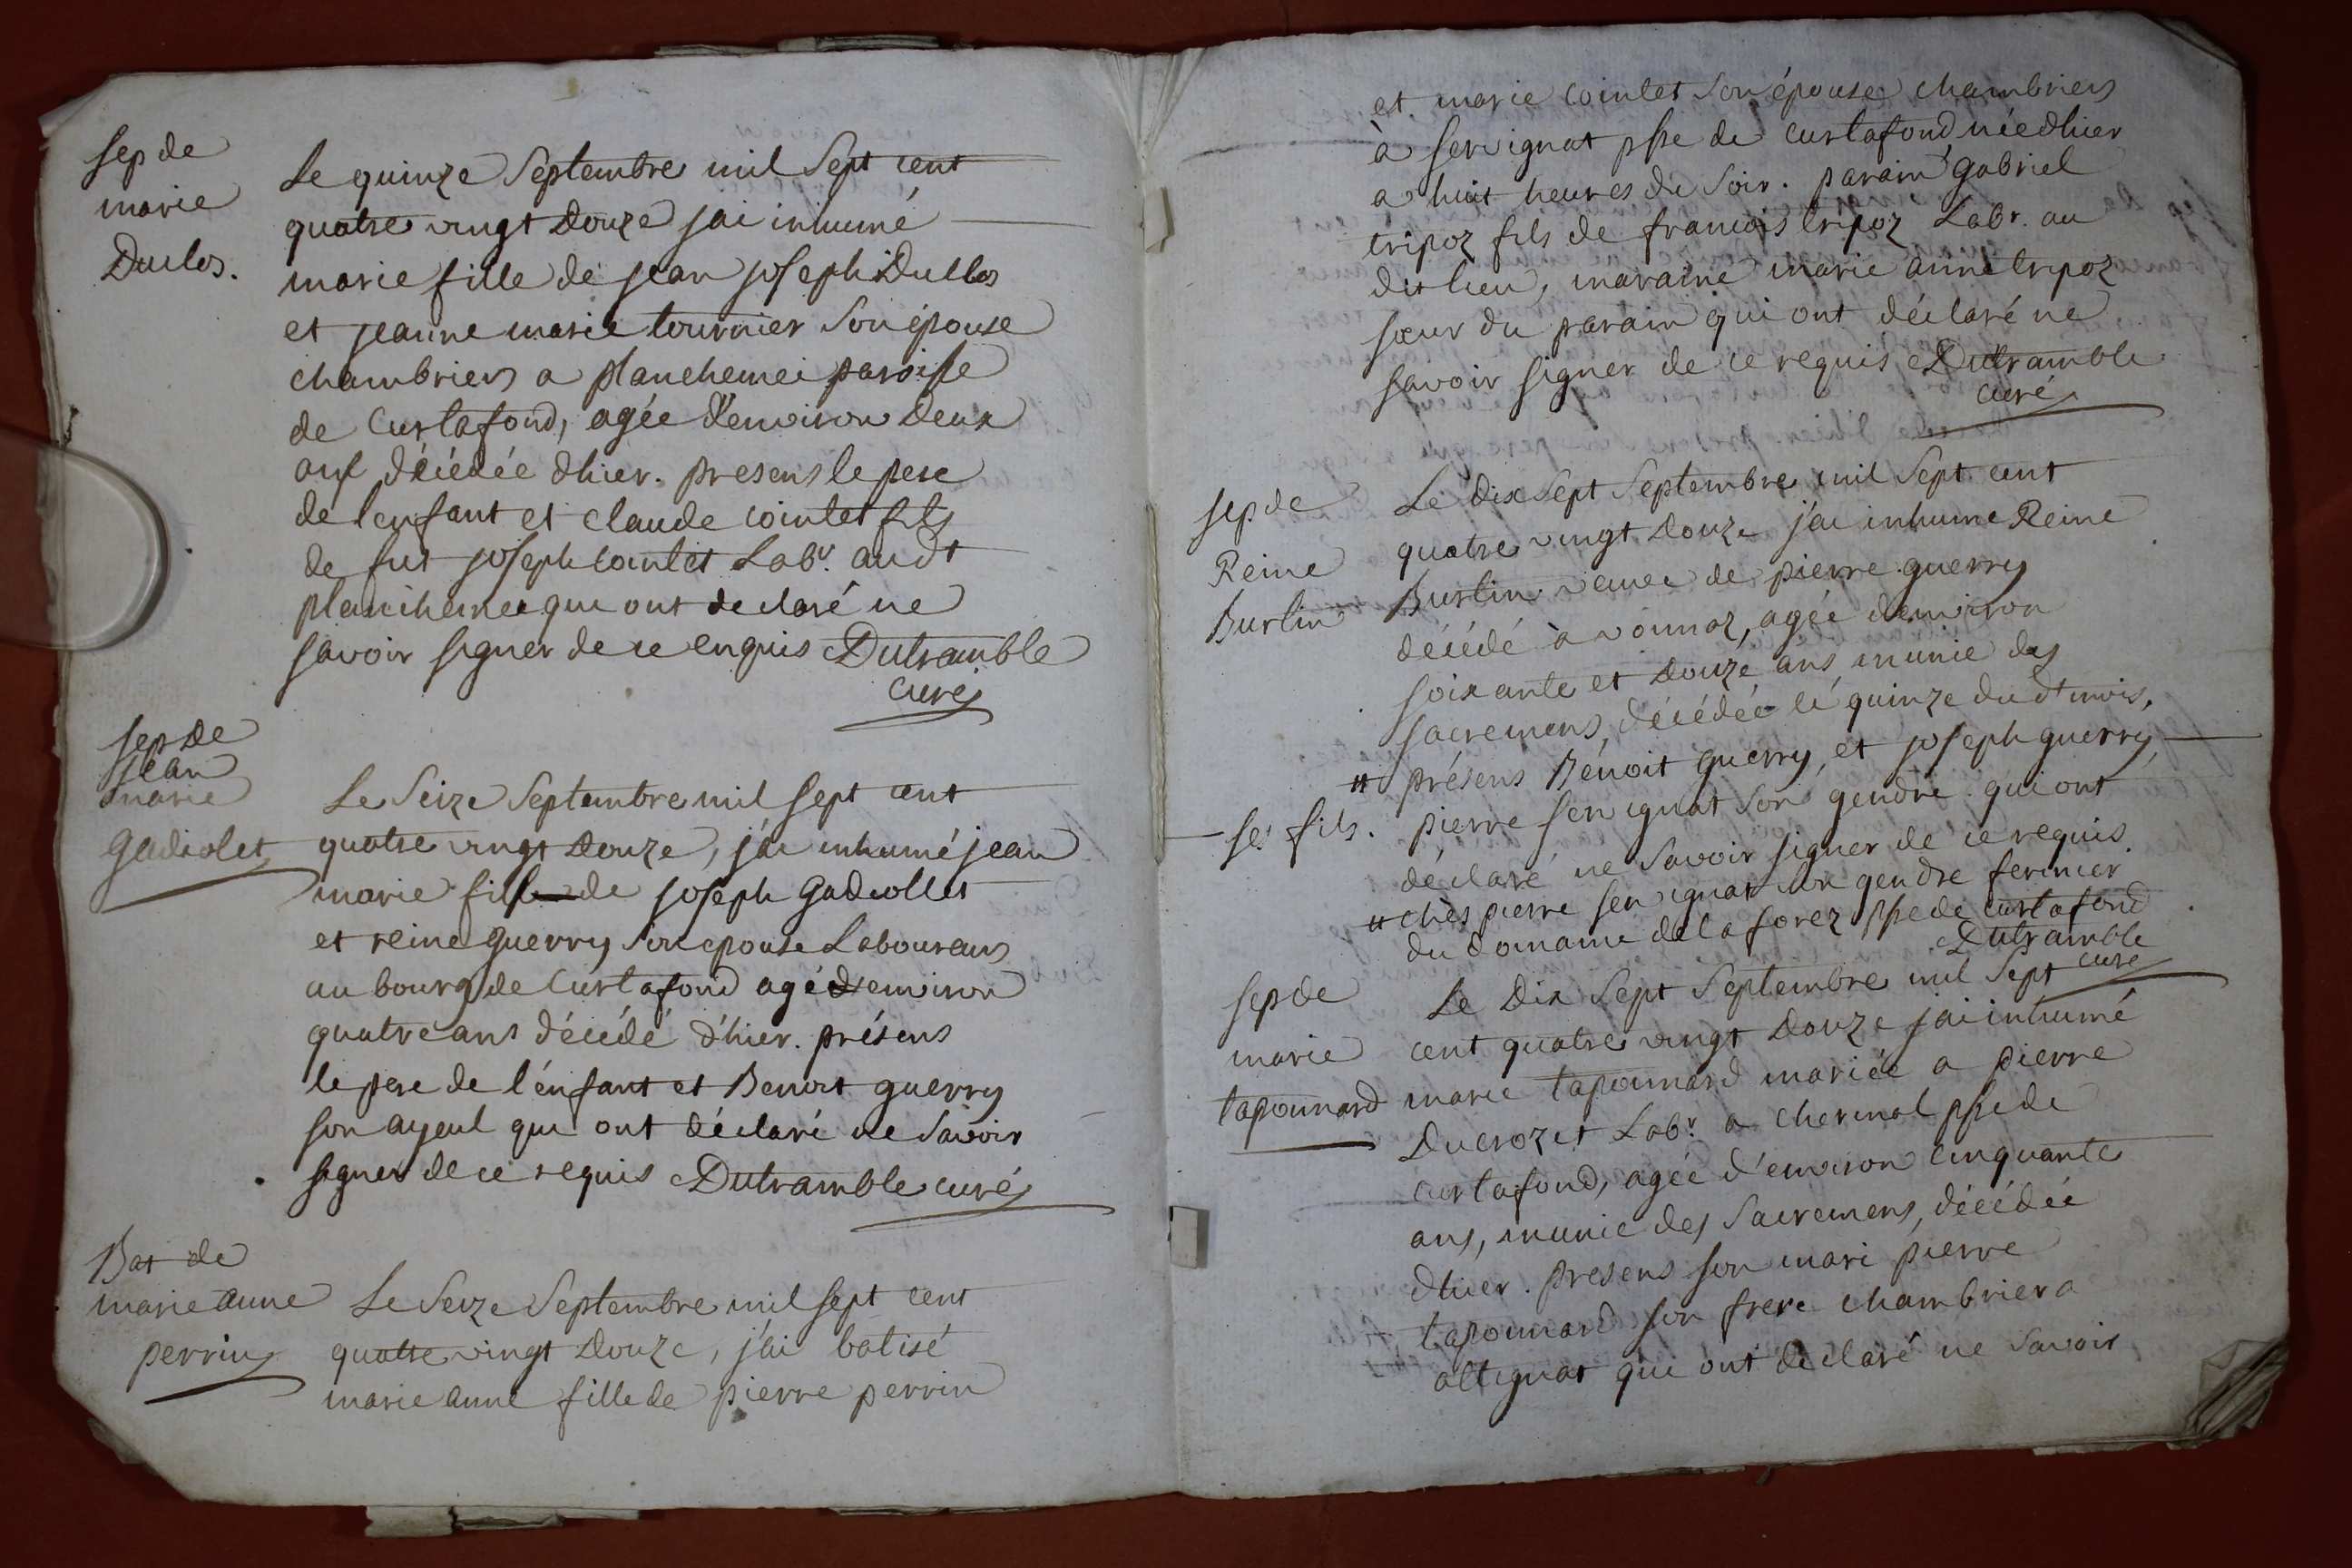 sep de
marie
Duclos.
Le quinze Septembre mil Sept cent
quatre vingt Douze jai inhumé
marie fille de jean joseph Dullos
et jeanne marie tournier Son épouse
chambriers a planchemei paroisse
de Curtafond, agée d'environ Deux
ans décédée d'hier. presens le pere
de lenfant et claude cointet fils
de fut joseph cointet Labr. audt
planchemei qui ont declaré ne
savoir signer de ce enquis Dutramble
curé
sep de
jean
marie
gadiolet
Le Seize Septembre mil sept cent
quatre vingt Douze, j'ai inhumé jean
marie fils de joseph gadiollet
et reine guerry son epouse Laboureurs
au bourg de Curtafond agé d'environ
quatre ans décédé d'hier. présens
le pere de l'énfant et Benoit guerry
son ayeul qui ont déclaré ne savoir
signer de ce requis Dutramble curé
Bat de
marie anne
perrin
Le Seize Septembre mil sept cent
quatre vingt Douze, j'ai batisé
marie anne fille de pierre perrin
et marie cointet son épouse chambriers
à servignat psse de curtafond née d'hier
a huit heures du soir. parain gabriel
tripoz fils de francois tripoz Labr. au
dit lieu, maraine marie anne tripoz
sœur du parain qui ont déclaré ne
savoir signer de ce requis Dutramble
curé
sep de
Reine
Burtin
Le Dix Sept Septembre mil Sept cent
quatre vingt Douze j'ai inhumé Reine
Burtin veuve de pierre guerry
décédé à vonnaz, agée denviron
soixante et Douze ans munie des
sacremens, décédée lé quinze du dt mois,
# présens Bénoit guerry, et joseph guerry
ses fils. pierre servignat son gendre qui ont
déclaré ne savoir signer de ce requis.
# chés pierre servignat son gendre fermier
du domaine de la forez psse de curtafond
Dutramble
curé
sep de
marie
taponnard
Le Dix Sept Septembre mil Sept
cent quatre vingt Douze jai inhumé
marie taponnard mariée a pierre
Ducrozet Labr. a chermal psse de
curtafond, agée d'environ cinquante
ans, munie des Sacremens, décédée
d'hier. presens son mari pierre
taponnard son frere chambrier a
attignat qui ont déclaré ne savoir